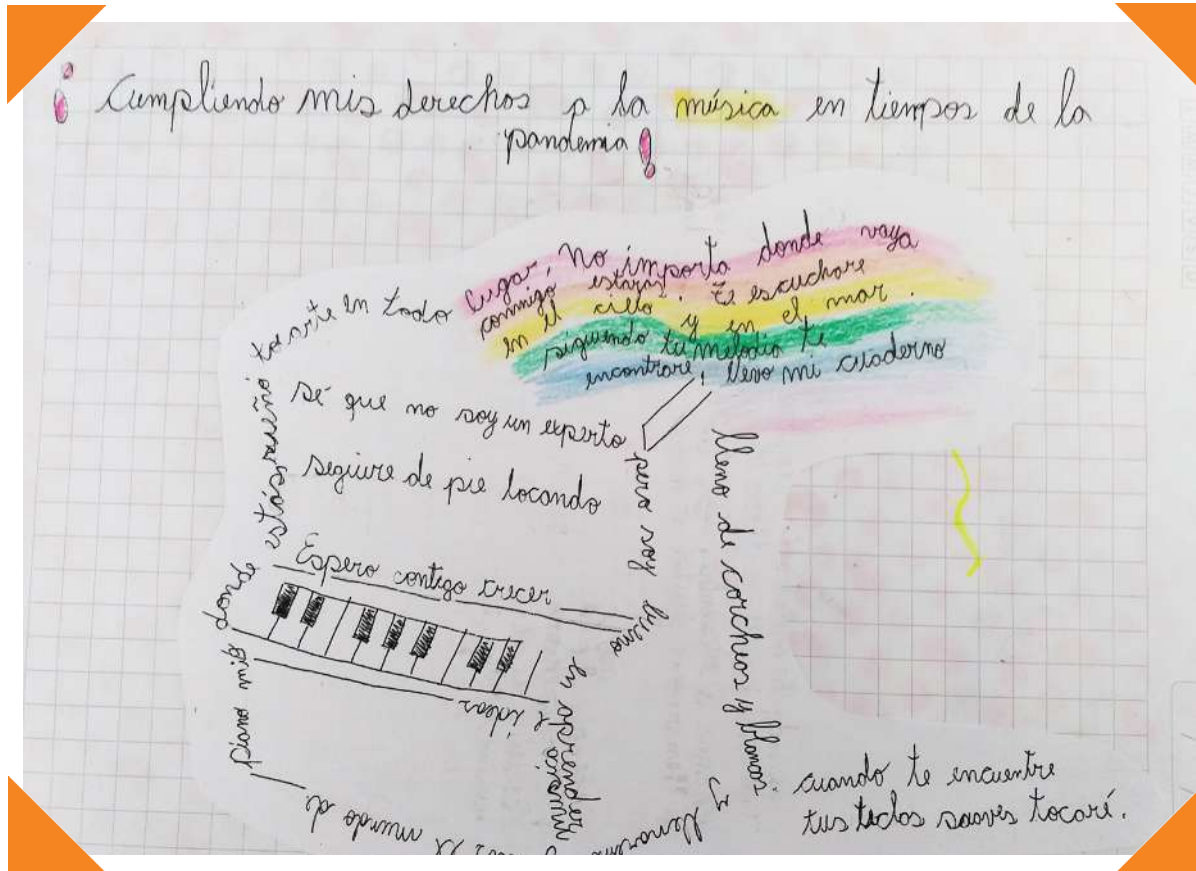 ¡ Cumpliendo mis derechos a la música en tiempos de la
pandemia !
piano mio
donde
estás sueño
tocarte en todo
lugar, No importa donde vaya
conmigo estaras. Te escuchare
en el cielo y en el mar.
siguiendo tu melodia te
encontrare, llevo mi cuaderno
lleno de corcheas y blancas.
cuando te encuentre
tus teclas suaves tocaré.
Sé que no soy un experto
pero soy bueno
en aprender
Seguire de pie tocando
Espero contigo crecer
e ideas
mundo de